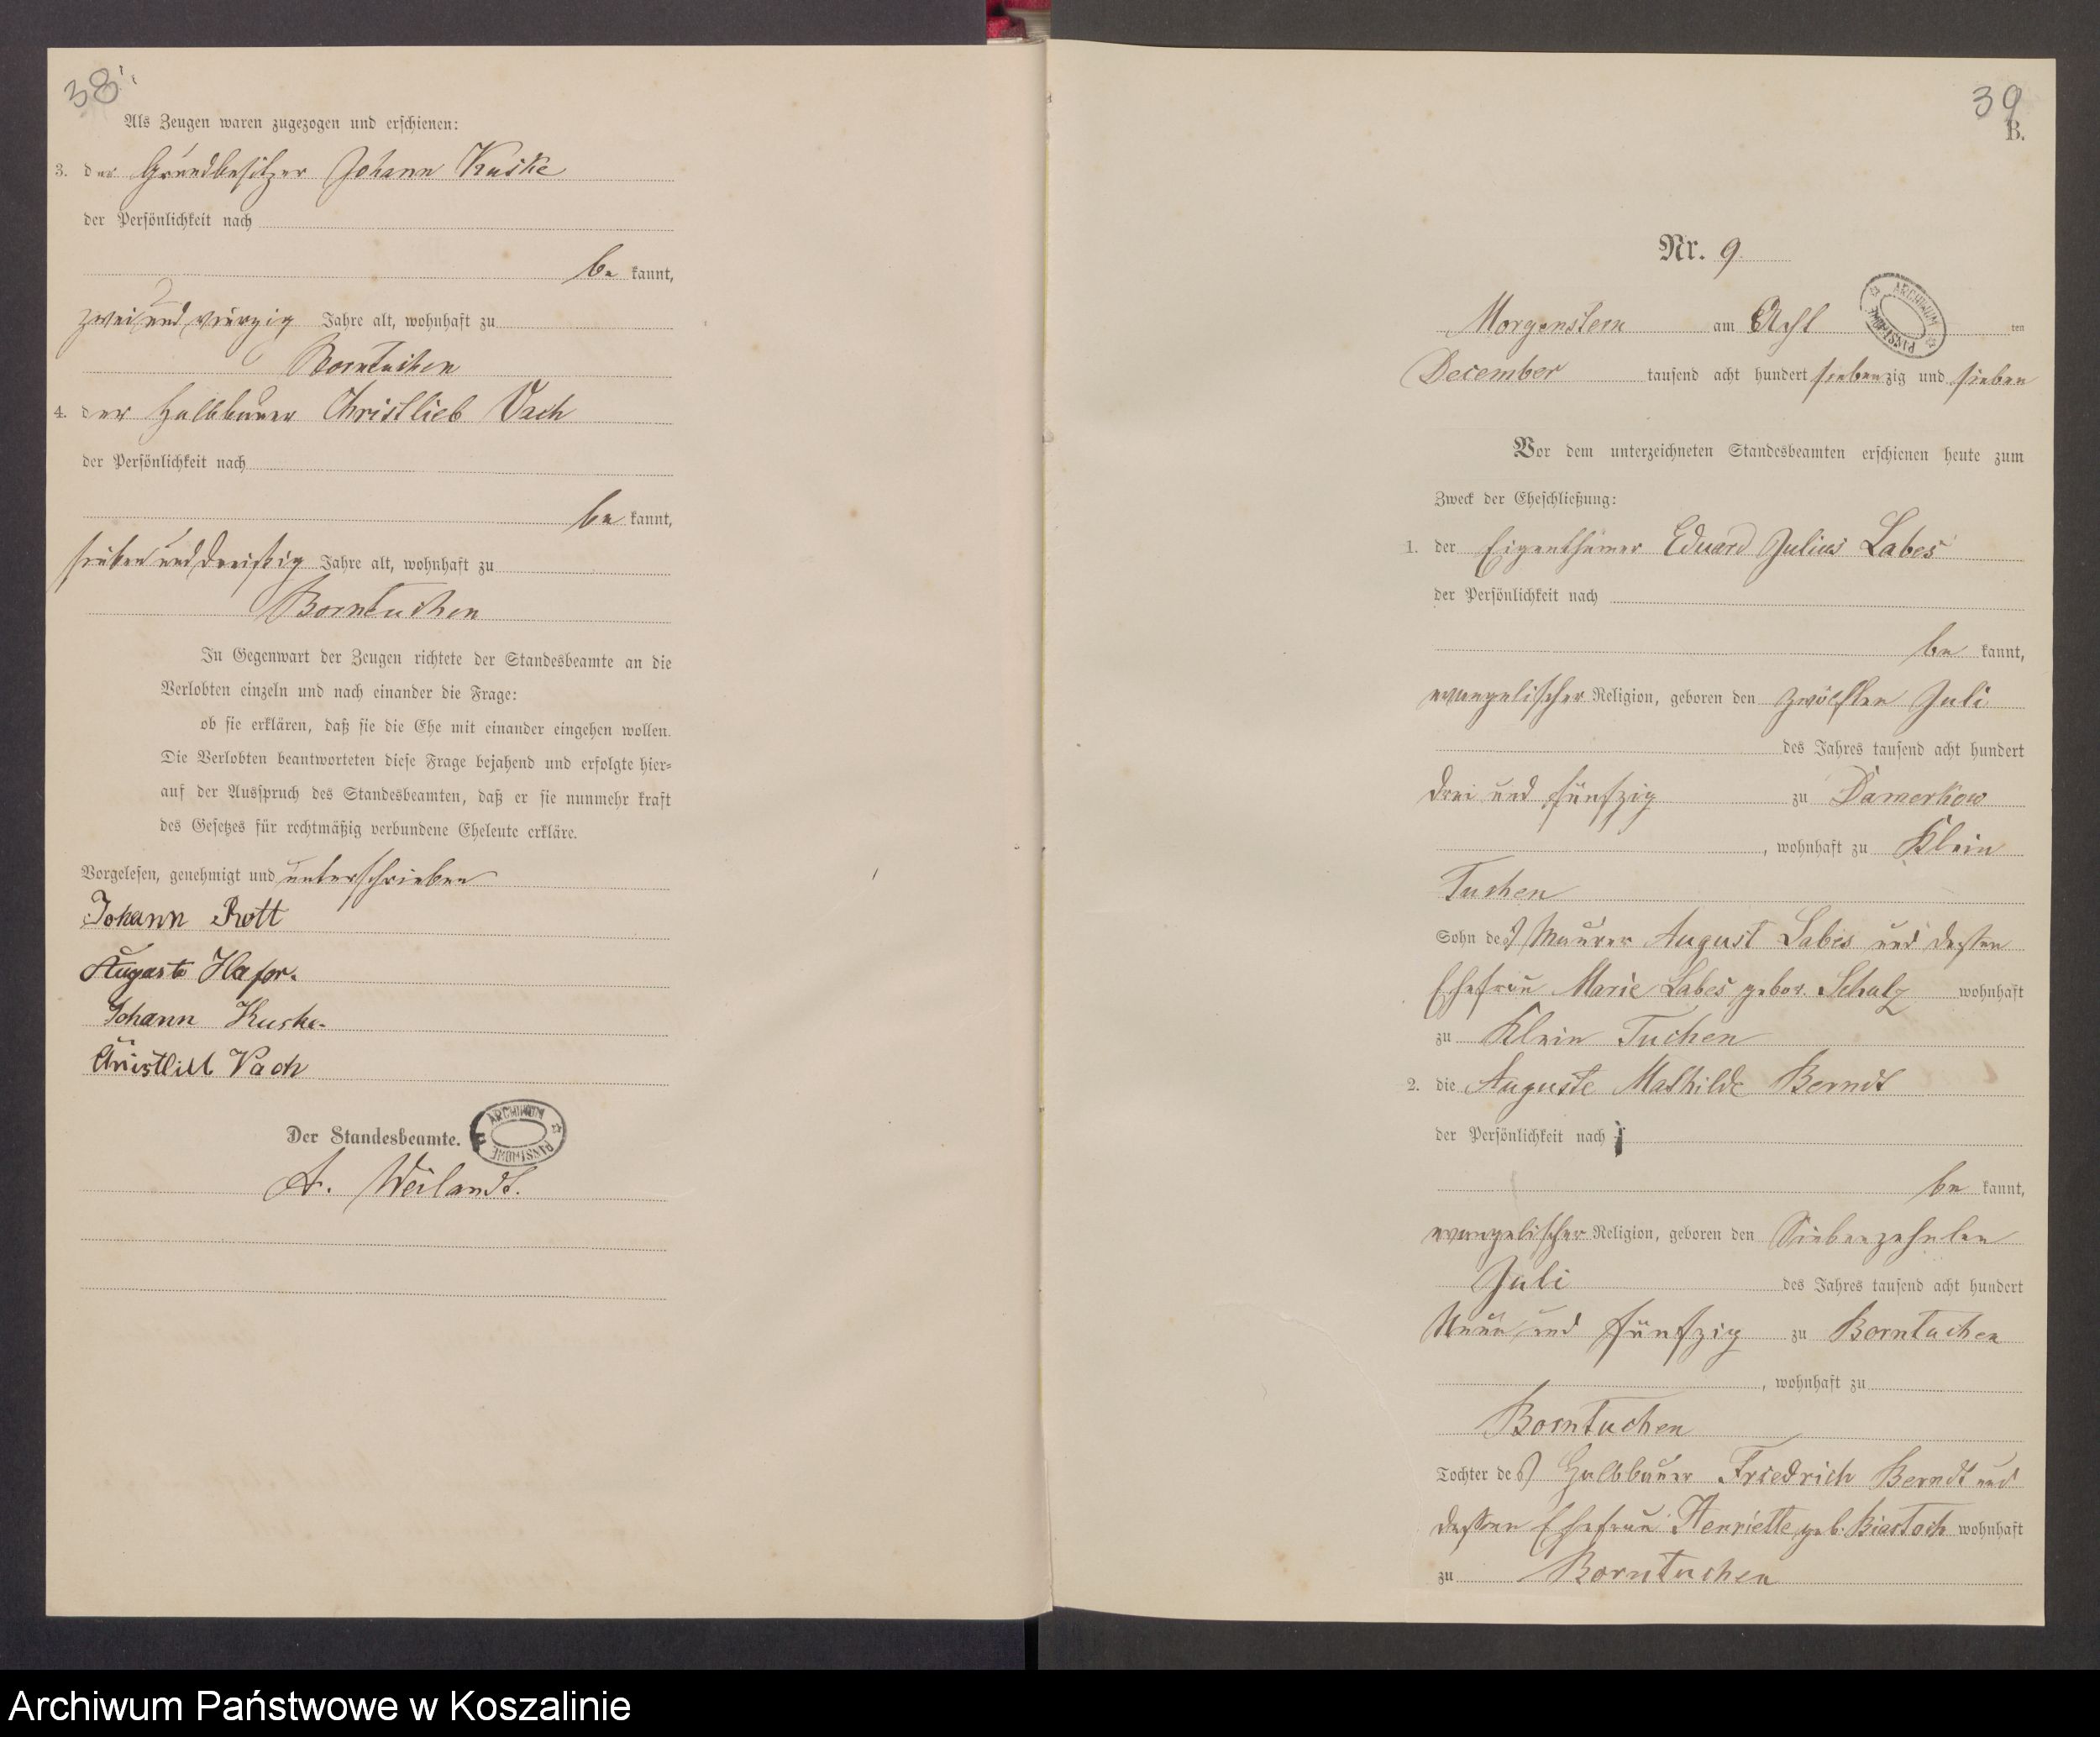 38.
Als Zeugen waren zugezogen und erschienen:
3. der Grundbesitzer Johann Kuske
der Persönlichkeit nach
be kannt,
zwei und vierzig Jahre alt, wohnhaft zu
Borntuchen
4. der Halbbauer Christlieb Vach
der Persönlichkeit nach
be kannt,
sieben und dreißig Jahre alt, wohnhaft zu
Borntuchen
In Gegenwart der Zeugen richtete der Standesbeamte an die
Verlobten einzeln und nach einander die Frage:
ob sie erklären, daß sie die Ehe mit einander eingehen wollen.
Die Verlobten beantworteten diese Frage bejahend und erfolgte hier-
auf der Ausspruch des Standesbeamten, daß er sie nunmehr kraft
des Gesetzes für rechtmäßig verbundene Eheleute erkläre.
Vorgelesen, genehmigt und unterschrieben
Johann Rott
Auguste
Johann Kuske
Christlieb Vach
Der Standesbeamte.
ARCHIWUM PAŃSTWOWE
A. Weilandt.
39
B.
Nr. 9.
ARCHIWUM PAŃSTWOWE
Morgenstern am Acht ten
December tausend acht hundert siebenzig und sieben
Vor dem unterzeichneten Standesbeamten erschienen heute zum
Zweck der Eheschließung:
1. der Eigenthümer Eduard Julius Labes
der Persönlichkeit nach
be kannt,
evangelischer Religion, geboren den zwölften Juli
des Jahres tausend acht hundert
drei und fünfzig zu Damerkow
, wohnhaft zu Klein
Tuchen
Sohn des Maurer August Labes und dessen
Ehefrau Marie Labes gebor. Schulz wohnhaft
zu Klein Tuchen
2. die Auguste Mathilde Berndt
der Persönlichkeit nach
be kannt,
evangelischer Religion, geboren den Siebenzehnten
Juli des Jahres tausend acht hundert
Neun und fünfzig zu Borntuchen
, wohnhaft zu
Borntuchen
Tochter des Halbbauer Friedrich Berndt und
dessen Ehefrau Henriette geb. Biastoch wohnhaft
zu Borntuchen
Archiwum Państwowe w Koszalinie